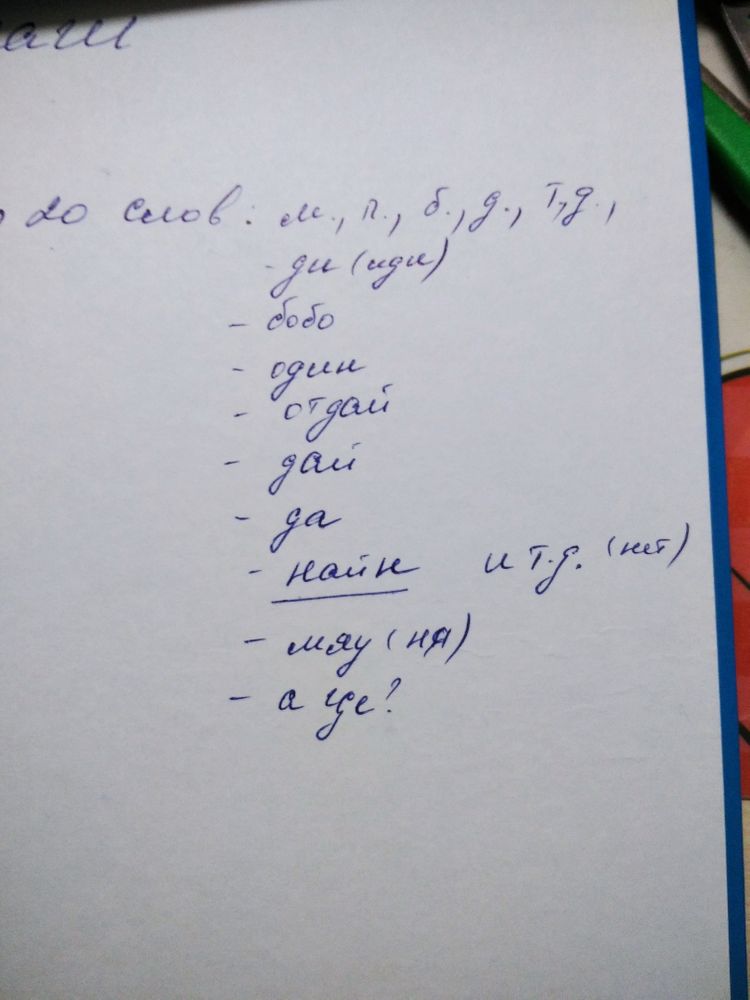 20 слов: м., п., б., д., т,д.,
- ди (иди)
- бобо
- один
- отдай
- дай
- да
- найн и т.д. (нет)
- мяу (ня)
- а где?